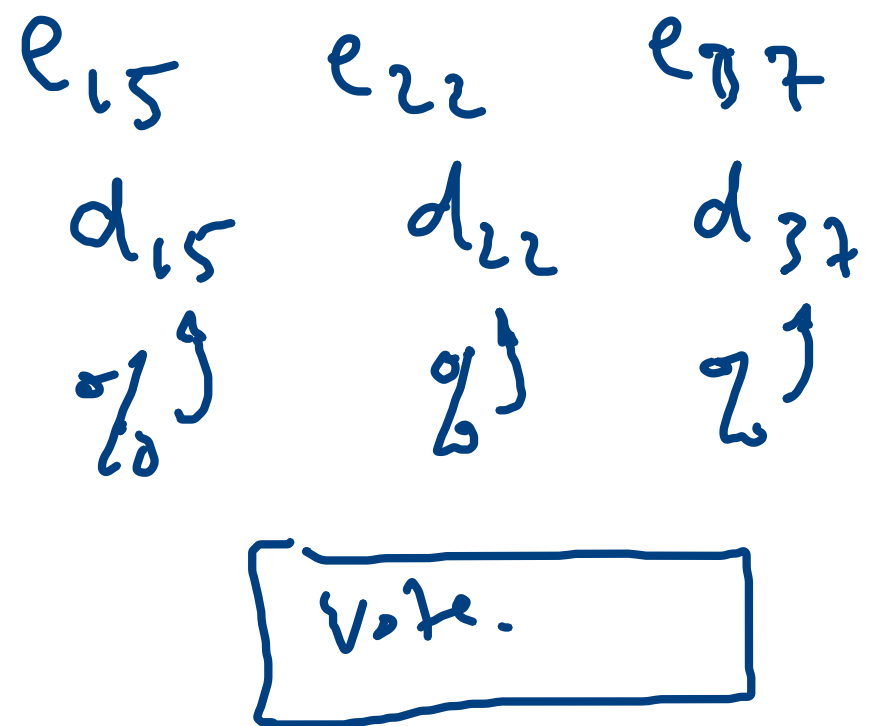 e₁₅ e₂₂ e₃₇
d₁₅ d₂₂ d₃₇
% % %
Vote.